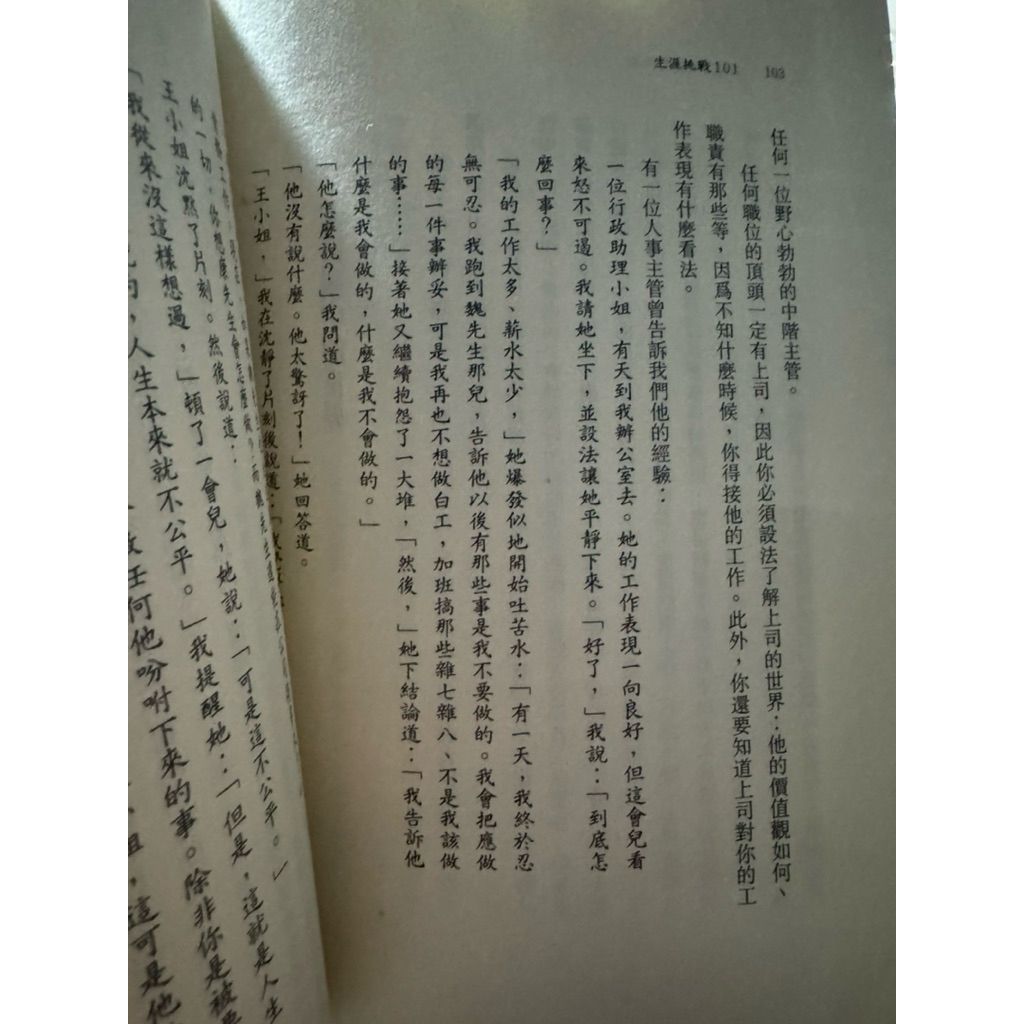 生涯挑戰101　103
任何一位野心勃勃的中階主管。
任何職位的頂頭一定有上司，因此你必須設法了解上司的世界：他的價值觀如何、
職責有那些等，因爲不知什麼時候，你得接他的工作。此外，你還要知道上司對你的工
作表現有什麼看法。
有一位人事主管曾告訴我們他的經驗：
一位行政助理小姐，有天到我辦公室去。她的工作表現一向良好，但這會兒看
來怒不可遏。我請她坐下，並設法讓她平靜下來。「好了，」我說：「到底怎
麼回事？」
「我的工作太多、薪水太少，」她爆發似地開始吐苦水：「有一天，我終於忍
無可忍。我跑到魏先生那兒，告訴他以後有那些事是我不要做的。我會把應做
的每一件事辦妥，可是我再也不想做白工，加班搞那些雜七雜八、不是我該做
的事……」接著她又繼續抱怨了一大堆，「然後，」她下結論道：「我告訴他
什麼是我會做的，什麼是我不會做的。」
「他怎麼說？」我問道。
「他沒有說什麼。他太驚訝了！」她回答道。
「王小姐，」我在沈靜了片刻後說道：「
的一切，你想魏先生會怎麼做？而
王小姐沈默了片刻。然後說道：
「我從來沒這樣想過，」頓了一會兒，她說：「可是這不公平。」
人生本來就不公平。」我提醒她：「但是，這就是人生
任何他吩咐下來的事。除非你是被
這可是他